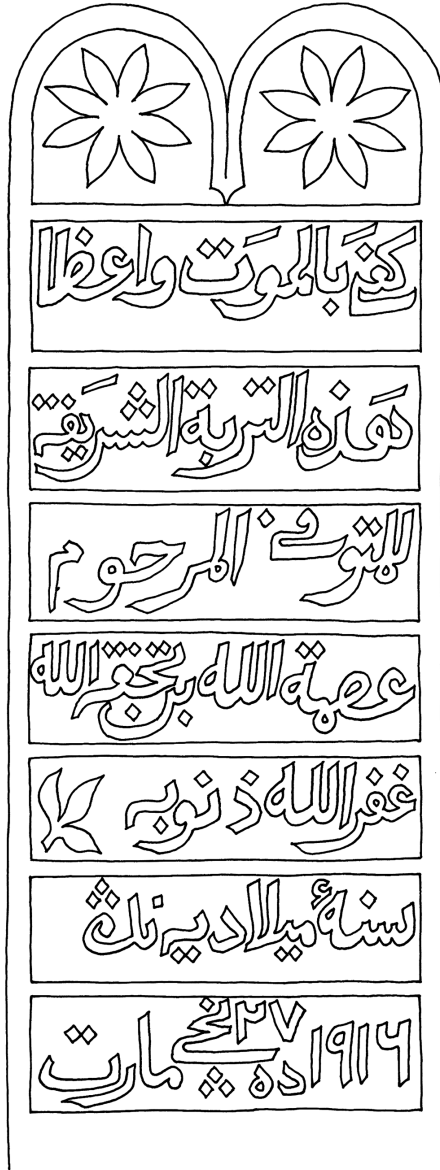 كفى بالموت واعظا
هذه التربة الشريفة
للمتوفى المرحوم
عصمة الله بن تحفة الله
غفر الله ذنوبه
سنهٔ ميلاديه نڭ
١٩١٦ ده ٢٧ نچى مارت